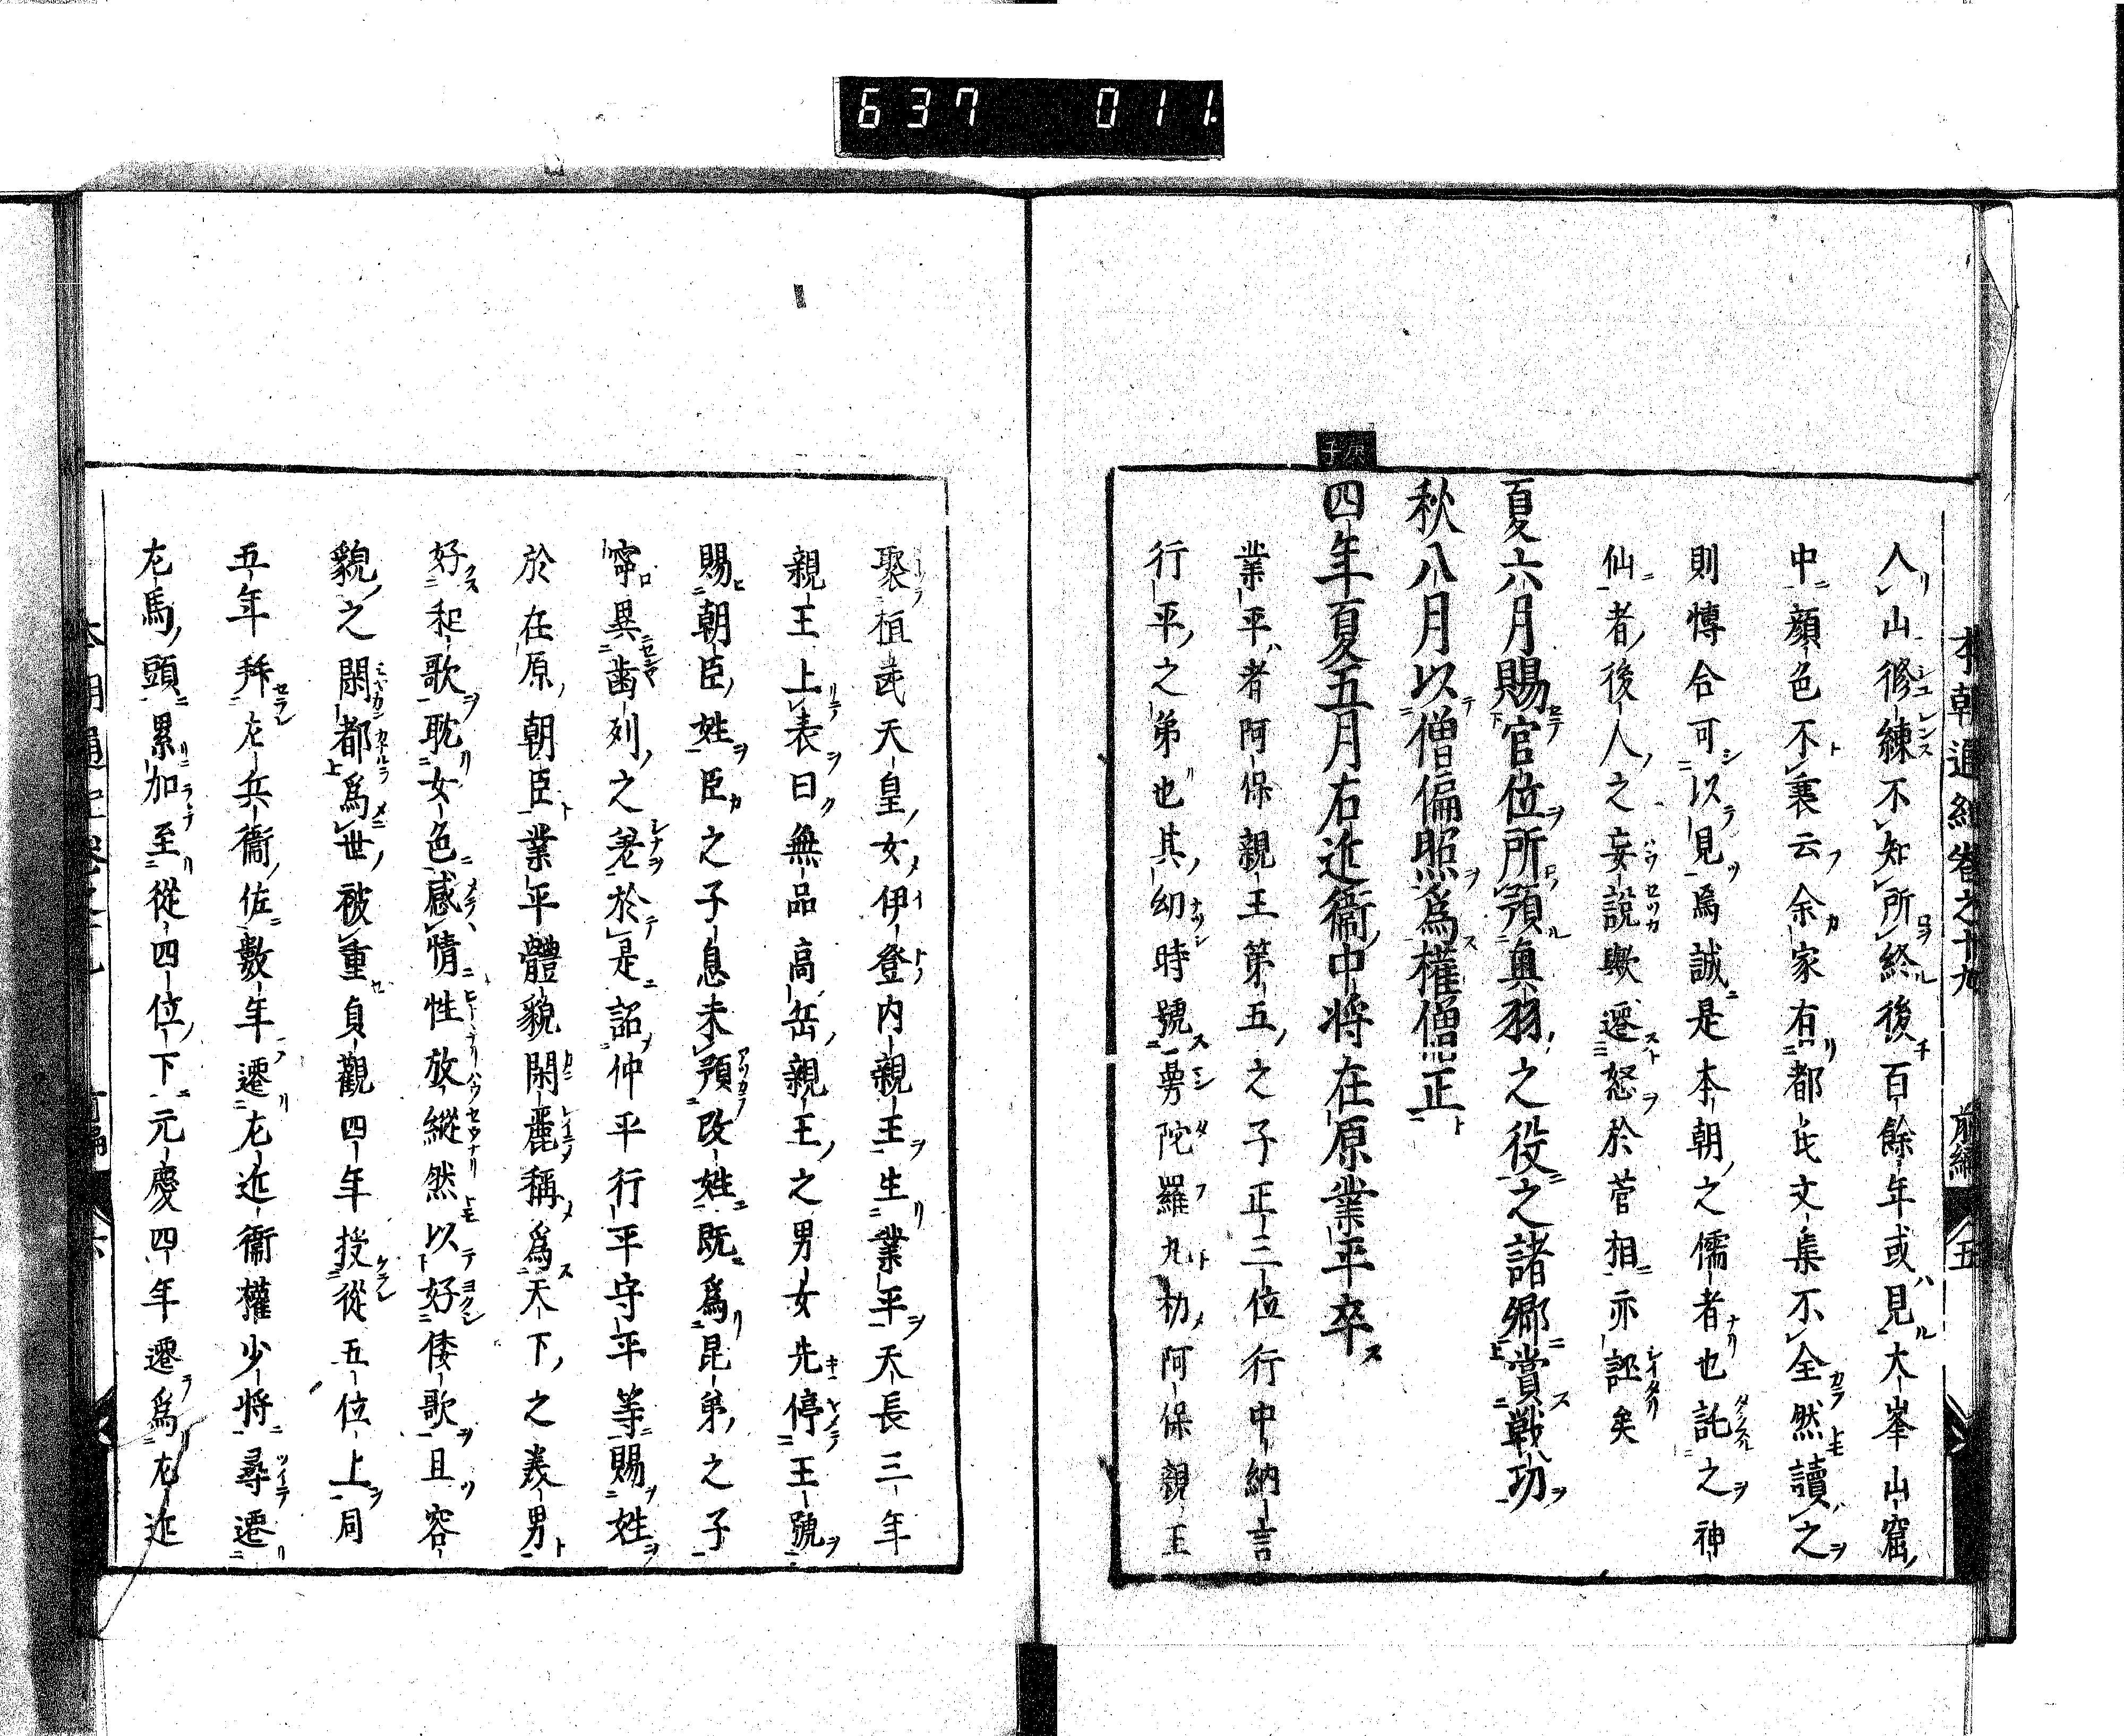 637 011.
本朝通紀卷之十九 前編 五
入山修練不知所終後百餘年或見大峯山窟
中顔色不衰云余家有都氏文集不全然讀之
則愽合可以見爲誠是本朝之儒者也託之神
仙者後人之妄說歟遷怒於菅相亦誣矣
夏六月賜官位所預奥羽之役之諸鄉賞戰功
秋八月以僧徧照爲權僧正
庚子
四年夏五月右近衞中将在原業平卒
業平者阿保親王第五之子正三位行中納言
行平之弟也其幼時號曼陀羅丸初阿保親王
娶桓武天皇女伊登内親王生業平天長三年
親王上表曰無品高岳親王之男女先停王號
賜朝臣姓臣之子息未預改姓既爲昆弟之子
寧異齒列之差於是詔仲平行平守平等賜姓
於在原朝臣業平體貌閑麗稱爲天下之美男
好和歌耽女色感情性放縱然以好倭歌且容
貌之閑都爲世被重貞觀四年授從五位上同
五年拜左兵衞佐數年遷左近衞權少将尋遷
左馬頭累加至從四位下元慶四年遷爲左近